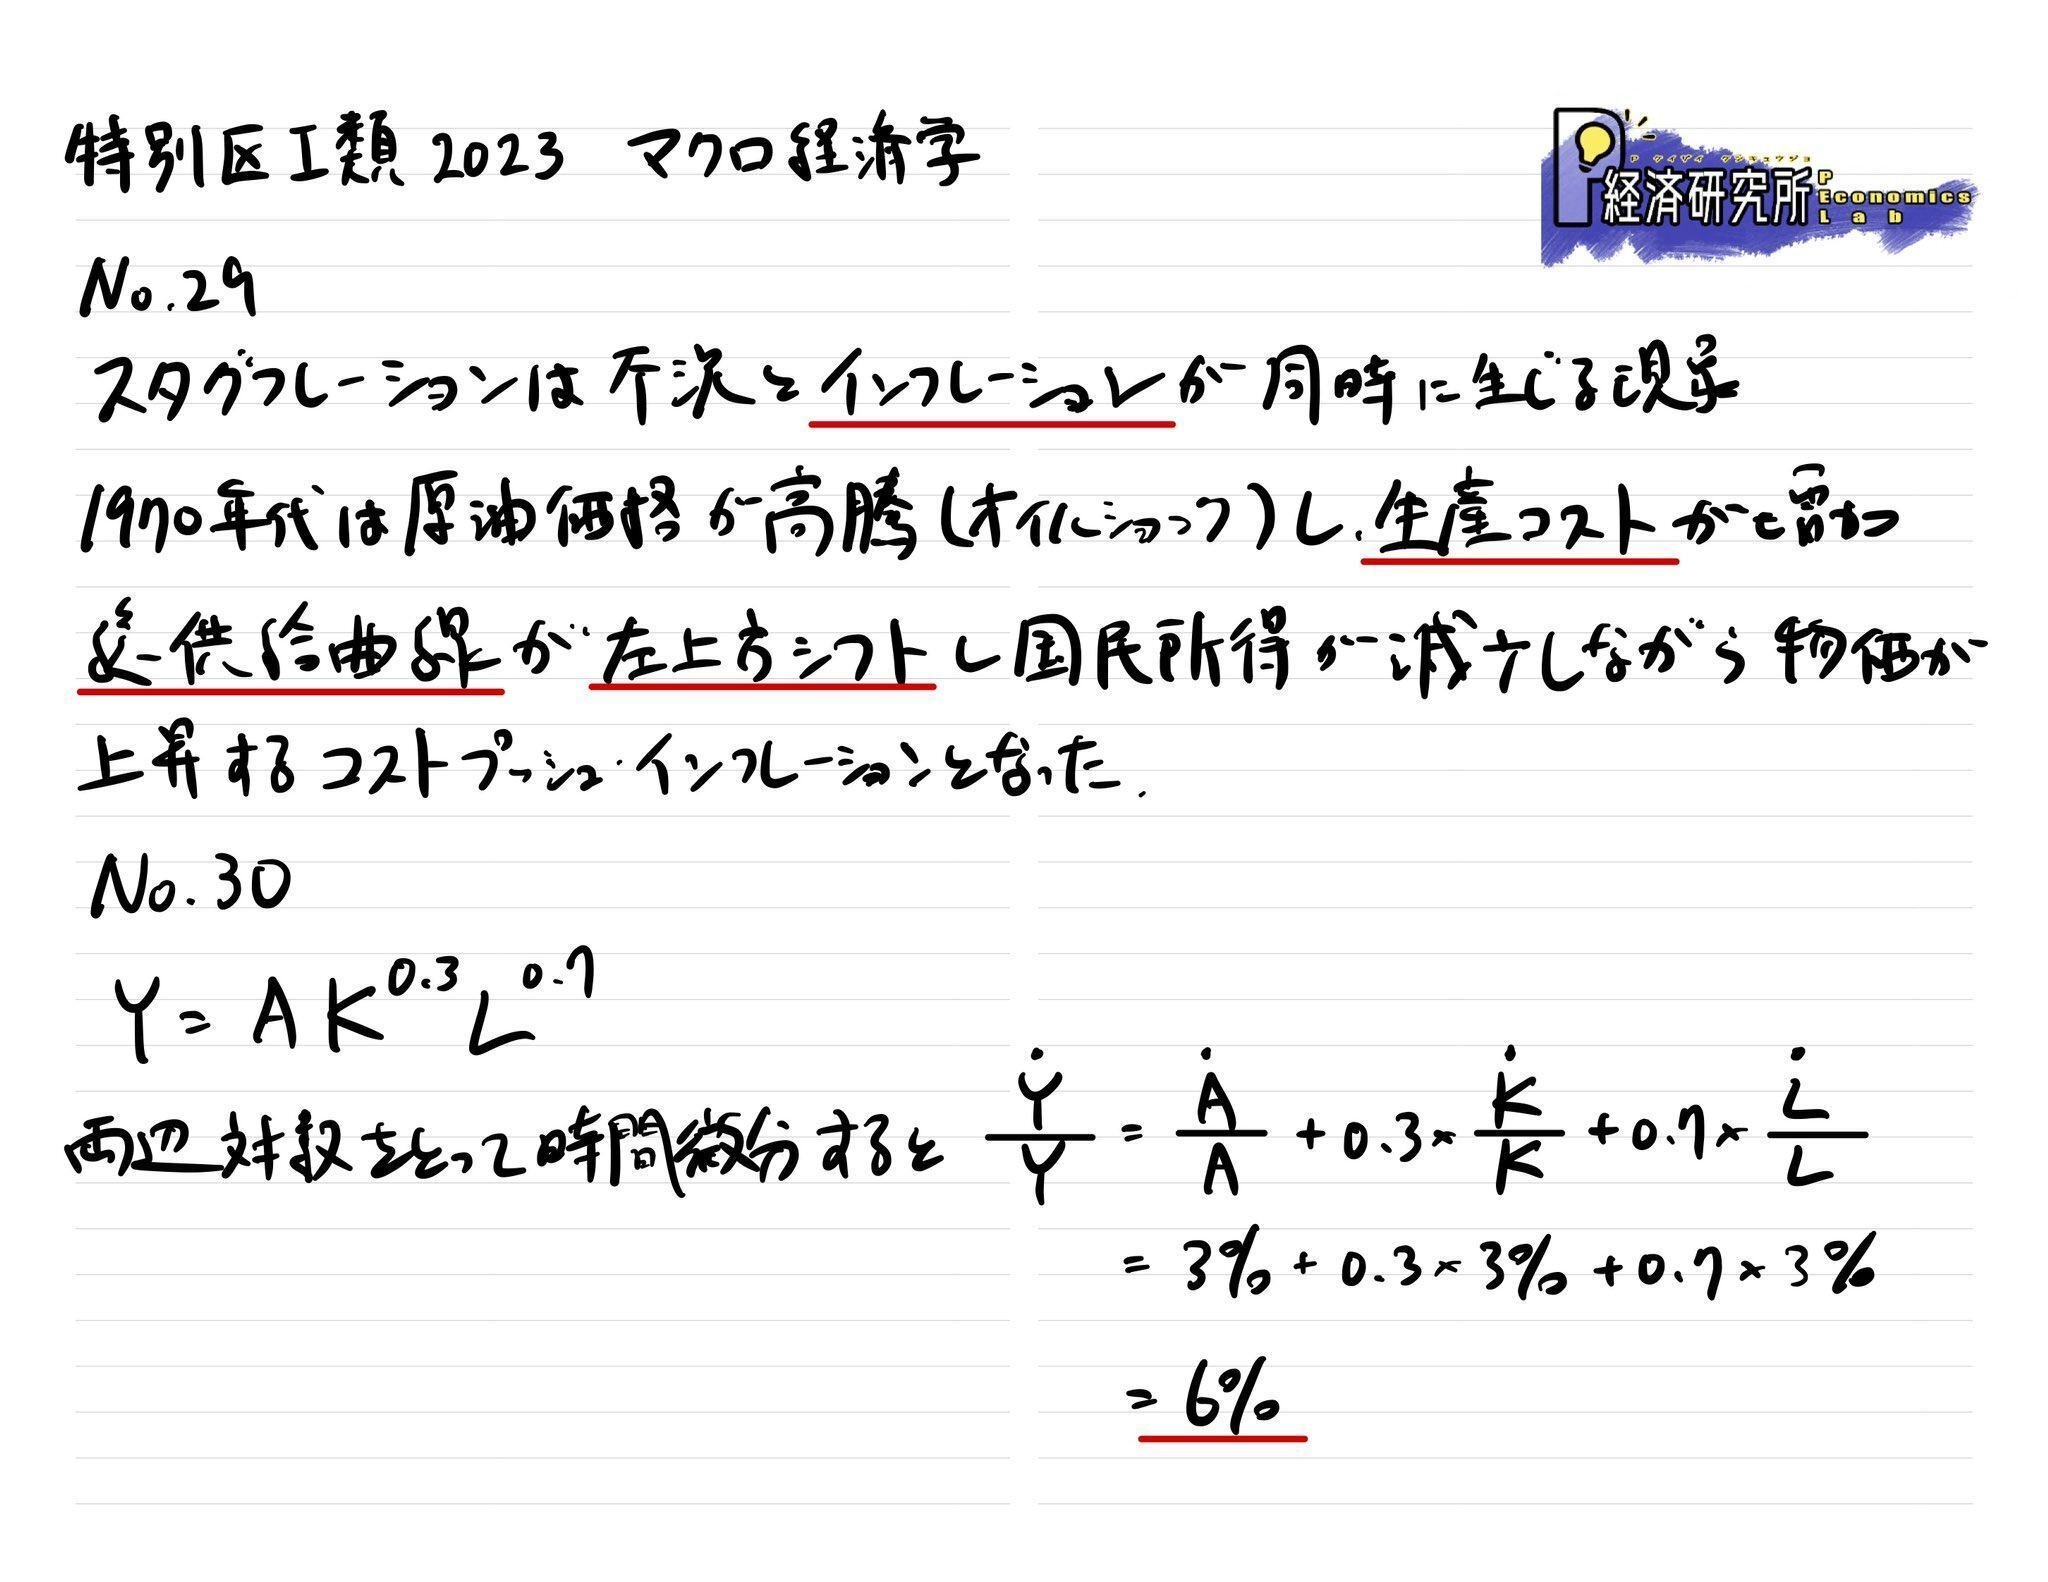 特別区Ⅰ類 2023 マクロ経済学
P ケイザイ ケンキュウジョ
P経済研究所
P
Economics
Lab
No.29
スタグフレーションは不況とインフレーションが同時に生じる現象
1970年代は原油価格が高騰(オイルショック)し、生産コストが増加
総供給曲線が左上方シフトし国民所得が減少しながら物価が
上昇するコストプッシュ・インフレーションとなった.
No.30
Y = A K^0.3 L^0.7
両辺対数をとって時間微分すると Ẏ/Y = Ȧ/A + 0.3 × K̇/K + 0.7 × L̇/L
= 3% + 0.3 × 3% + 0.7 × 3%
= 6%